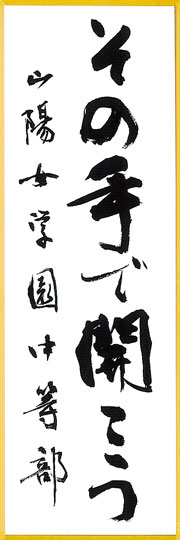 その手で開こう
山陽女学園中等部